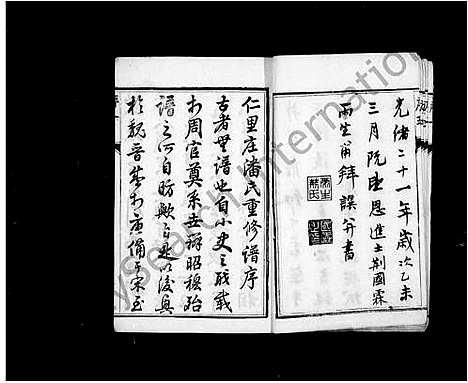 光緒二十一年歲次乙未
三月既望恩進士荊國霖
雨生甫拜譔并書
仁里庄潘氏重修譜序
古者無譜也自小史之職載
於周官奠系世辨昭穆殆
譜之所自昉歟是以後興
於魏晉盛於唐備于宋至